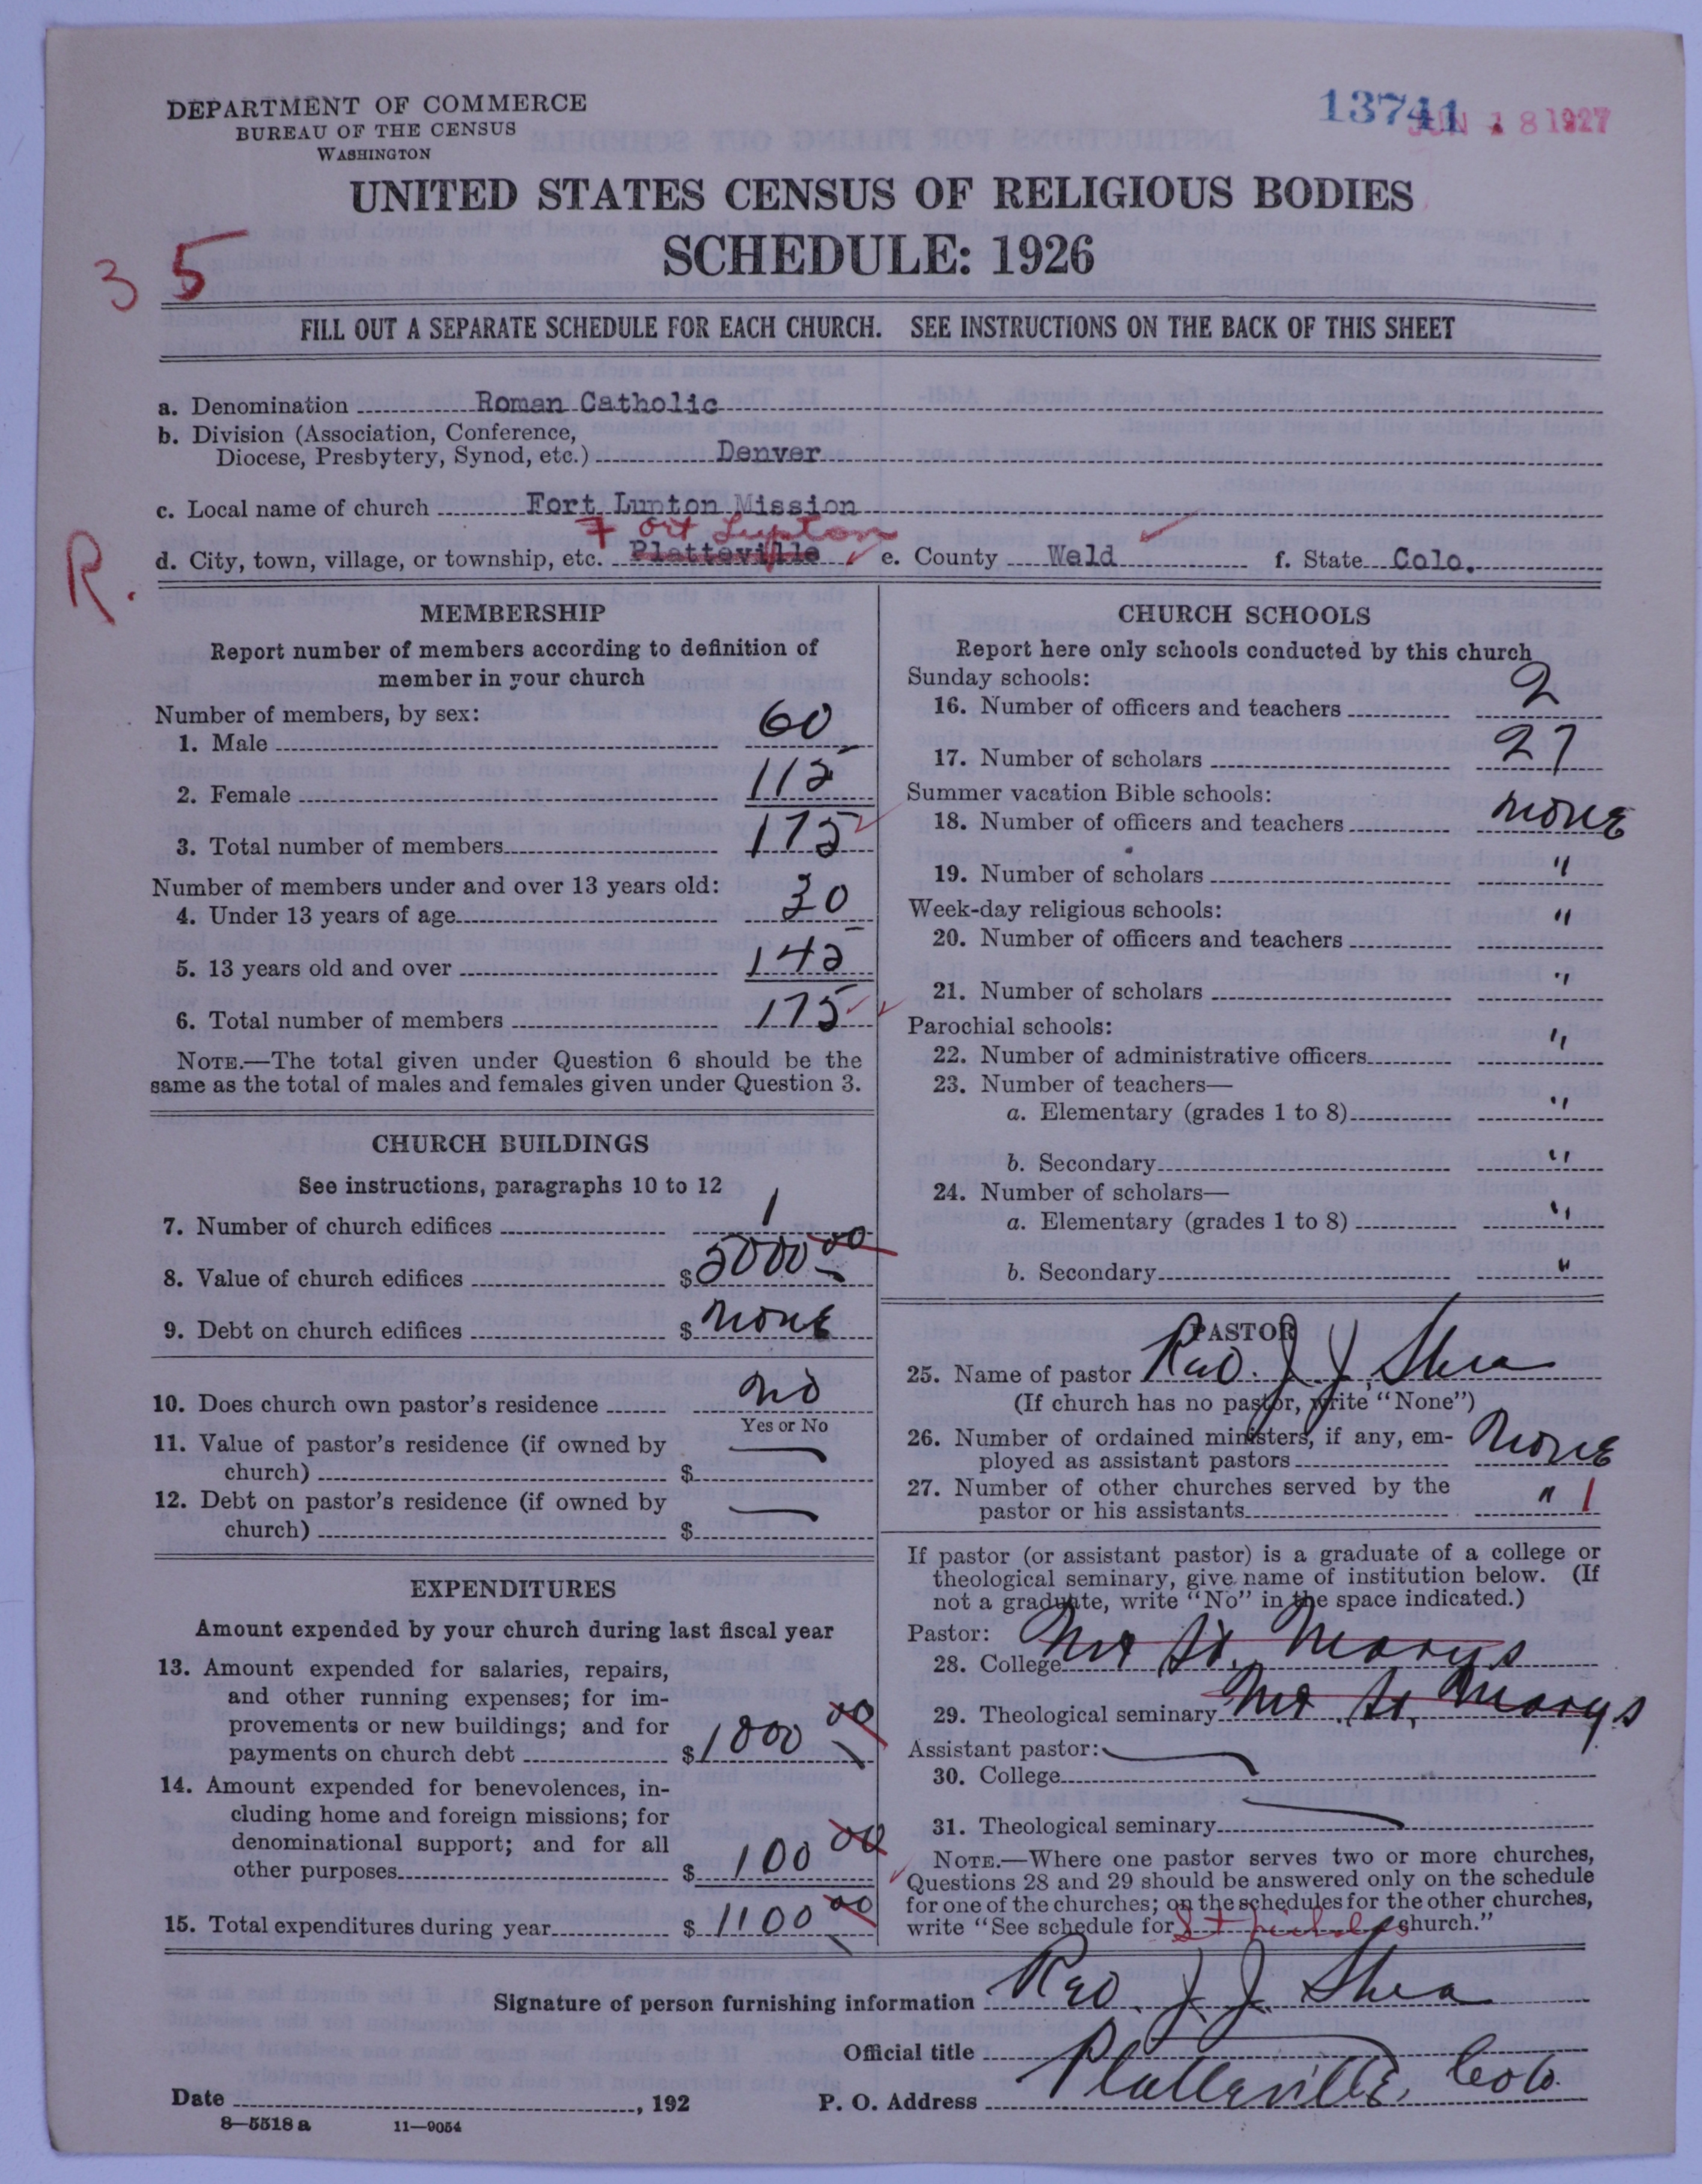 DEPARTMENT OF COMMERCE
BUREAU OF THE CENSUS
WASHINGTON
13741
JUN 18 1927
UNITED STATES CENSUS OF RELIGIOUS BODIES
SCHEDULE: 1926
3 5
FILL OUT A SEPARATE SCHEDULE FOR EACH CHURCH. SEE INSTRUCTIONS ON THE BACK OF THIS SHEET
a. Denomination Roman Catholic
b. Division (Association, Conference,
Diocese, Presbytery, Synod, etc.) Denver
c. Local name of church Fort Lupton Mission
Fort Lupton
d. City, town, village, or township, etc. Platteville e. County Weld f. State Colo.
R.
MEMBERSHIP
Report number of members according to definition of
member in your church
Number of members, by sex:
1. Male 60
2. Female 112
3. Total number of members 175
Number of members under and over 13 years old:
4. Under 13 years of age 30
5. 13 years old and over 145
6. Total number of members 175
NOTE.—The total given under Question 6 should be the
same as the total of males and females given under Question 3.
CHURCH BUILDINGS
See instructions, paragraphs 10 to 12
7. Number of church edifices 1
8. Value of church edifices $ 5000 00
9. Debt on church edifices $ none
10. Does church own pastor's residence no
Yes or No
11. Value of pastor's residence (if owned by
church) $
12. Debt on pastor's residence (if owned by
church) $
EXPENDITURES
Amount expended by your church during last fiscal year
13. Amount expended for salaries, repairs,
and other running expenses; for im-
provements or new buildings; and for
payments on church debt $ 1000 00
14. Amount expended for benevolences, in-
cluding home and foreign missions; for
denominational support; and for all
other purposes $ 100 00
15. Total expenditures during year $ 1100 00
CHURCH SCHOOLS
Report here only schools conducted by this church
Sunday schools:
16. Number of officers and teachers 2
17. Number of scholars 27
Summer vacation Bible schools:
18. Number of officers and teachers none
19. Number of scholars "
Week-day religious schools:
20. Number of officers and teachers "
21. Number of scholars "
Parochial schools:
22. Number of administrative officers "
23. Number of teachers—
a. Elementary (grades 1 to 8) "
b. Secondary "
24. Number of scholars—
a. Elementary (grades 1 to 8) "
b. Secondary "
PASTOR
25. Name of pastor Rev. J J Shea
(If church has no pastor, write "None")
26. Number of ordained ministers, if any, em-
ployed as assistant pastors none
27. Number of other churches served by the
pastor or his assistants " 1
If pastor (or assistant pastor) is a graduate of a college or
theological seminary, give name of institution below. (If
not a graduate, write "No" in the space indicated.)
Pastor:
28. College Mt St. Marys
29. Theological seminary Mt. St. Marys
Assistant pastor:
30. College
31. Theological seminary
NOTE.—Where one pastor serves two or more churches,
Questions 28 and 29 should be answered only on the schedule
for one of the churches; on the schedules for the other churches,
write "See schedule for St Nicholas church."
Signature of person furnishing information Rev. J. J. Shea
Official title
Date , 192 P. O. Address Platteville, Colo.
8—5518 a 11—9054